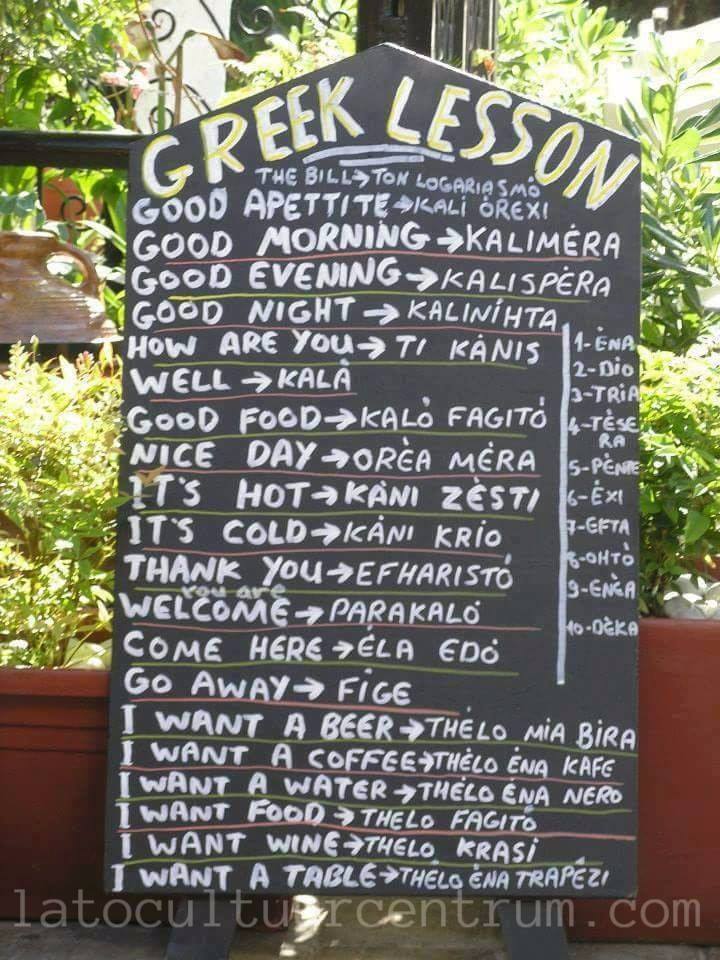 GREEK LESSON
THE BILL→TON LOGARIASMÒ
GOOD APETTITE→KALI ÒREXI
GOOD MORNING→KALIMÈRA
GOOD EVENING→KALISPÈRA
GOOD NIGHT→KALINÍHTA
HOW ARE YOU→TI KÀNIS
WELL→KALÀ
GOOD FOOD→KALÒ FAGITÓ
NICE DAY→ORÈA MÈRA
IT'S HOT→KÀNI ZÈSTI
IT'S COLD→KÀNI KRÍO
THANK YOU→EFHARISTÓ
you are
WELCOME→PARAKALÓ
COME HERE→ÉLA EDÓ
GO AWAY→FÍGE
I WANT A BEER→THÉLO MIA BIRA
I WANT A COFFEE→THÈLO ÉNA KAFE
I WANT A WATER→THÉLO ÉNA NERO
I WANT FOOD→THELO FAGITÓ
I WANT WINE→THELO KRASÍ
I WANT A TABLE→THÉLO ÈNA TRAPÉZI
1-ÈNA
2-DIO
3-TRIA
4-TÈSE
RA
5-PÈNTE
6-ÉXI
7-EFTA
8-OHTÒ
9-ENÈA
10-DÈKA
latocultuurcentrum.com